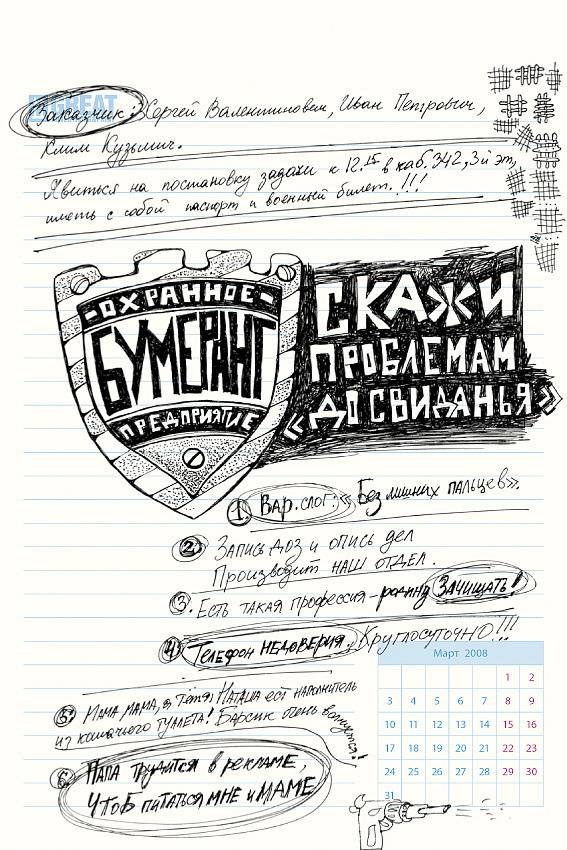 GREAT
Заказчик: Сергей Валентинович, Иван Петрович,
Клим Кузьмич.
Явиться на постановку задачи к 12.15 в каб. 342, 3й эт,
иметь с собой паспорт и военный билет.!!!
-ОХРАННОЕ-
БУМЕРАНГ
ПРЕДПРИЯТИЕ
СКАЖИ
ПРОБЛЕМАМ
«ДО СВИДАНЬЯ»
1. Вар. слог: «Без лишних пальцев».
2. Запись доз и опись дел
Производит наш отдел.
3. Есть такая профессия – родину зачищать!
4. Телефон недоверия. Круглосуточно!!!
5. Мама мама, а тётя Наташа ест наполнитель
из кошачьего туалета! Барсик очень волнуется!
6. Папа трудится в рекламе,
чтоб питаться мне и маме
Март 2008
1 2
3 4 5 6 7 8 9
10 11 12 13 14 15 16
17 18 19 20 21 22 23
24 25 26 27 28 29 30
31